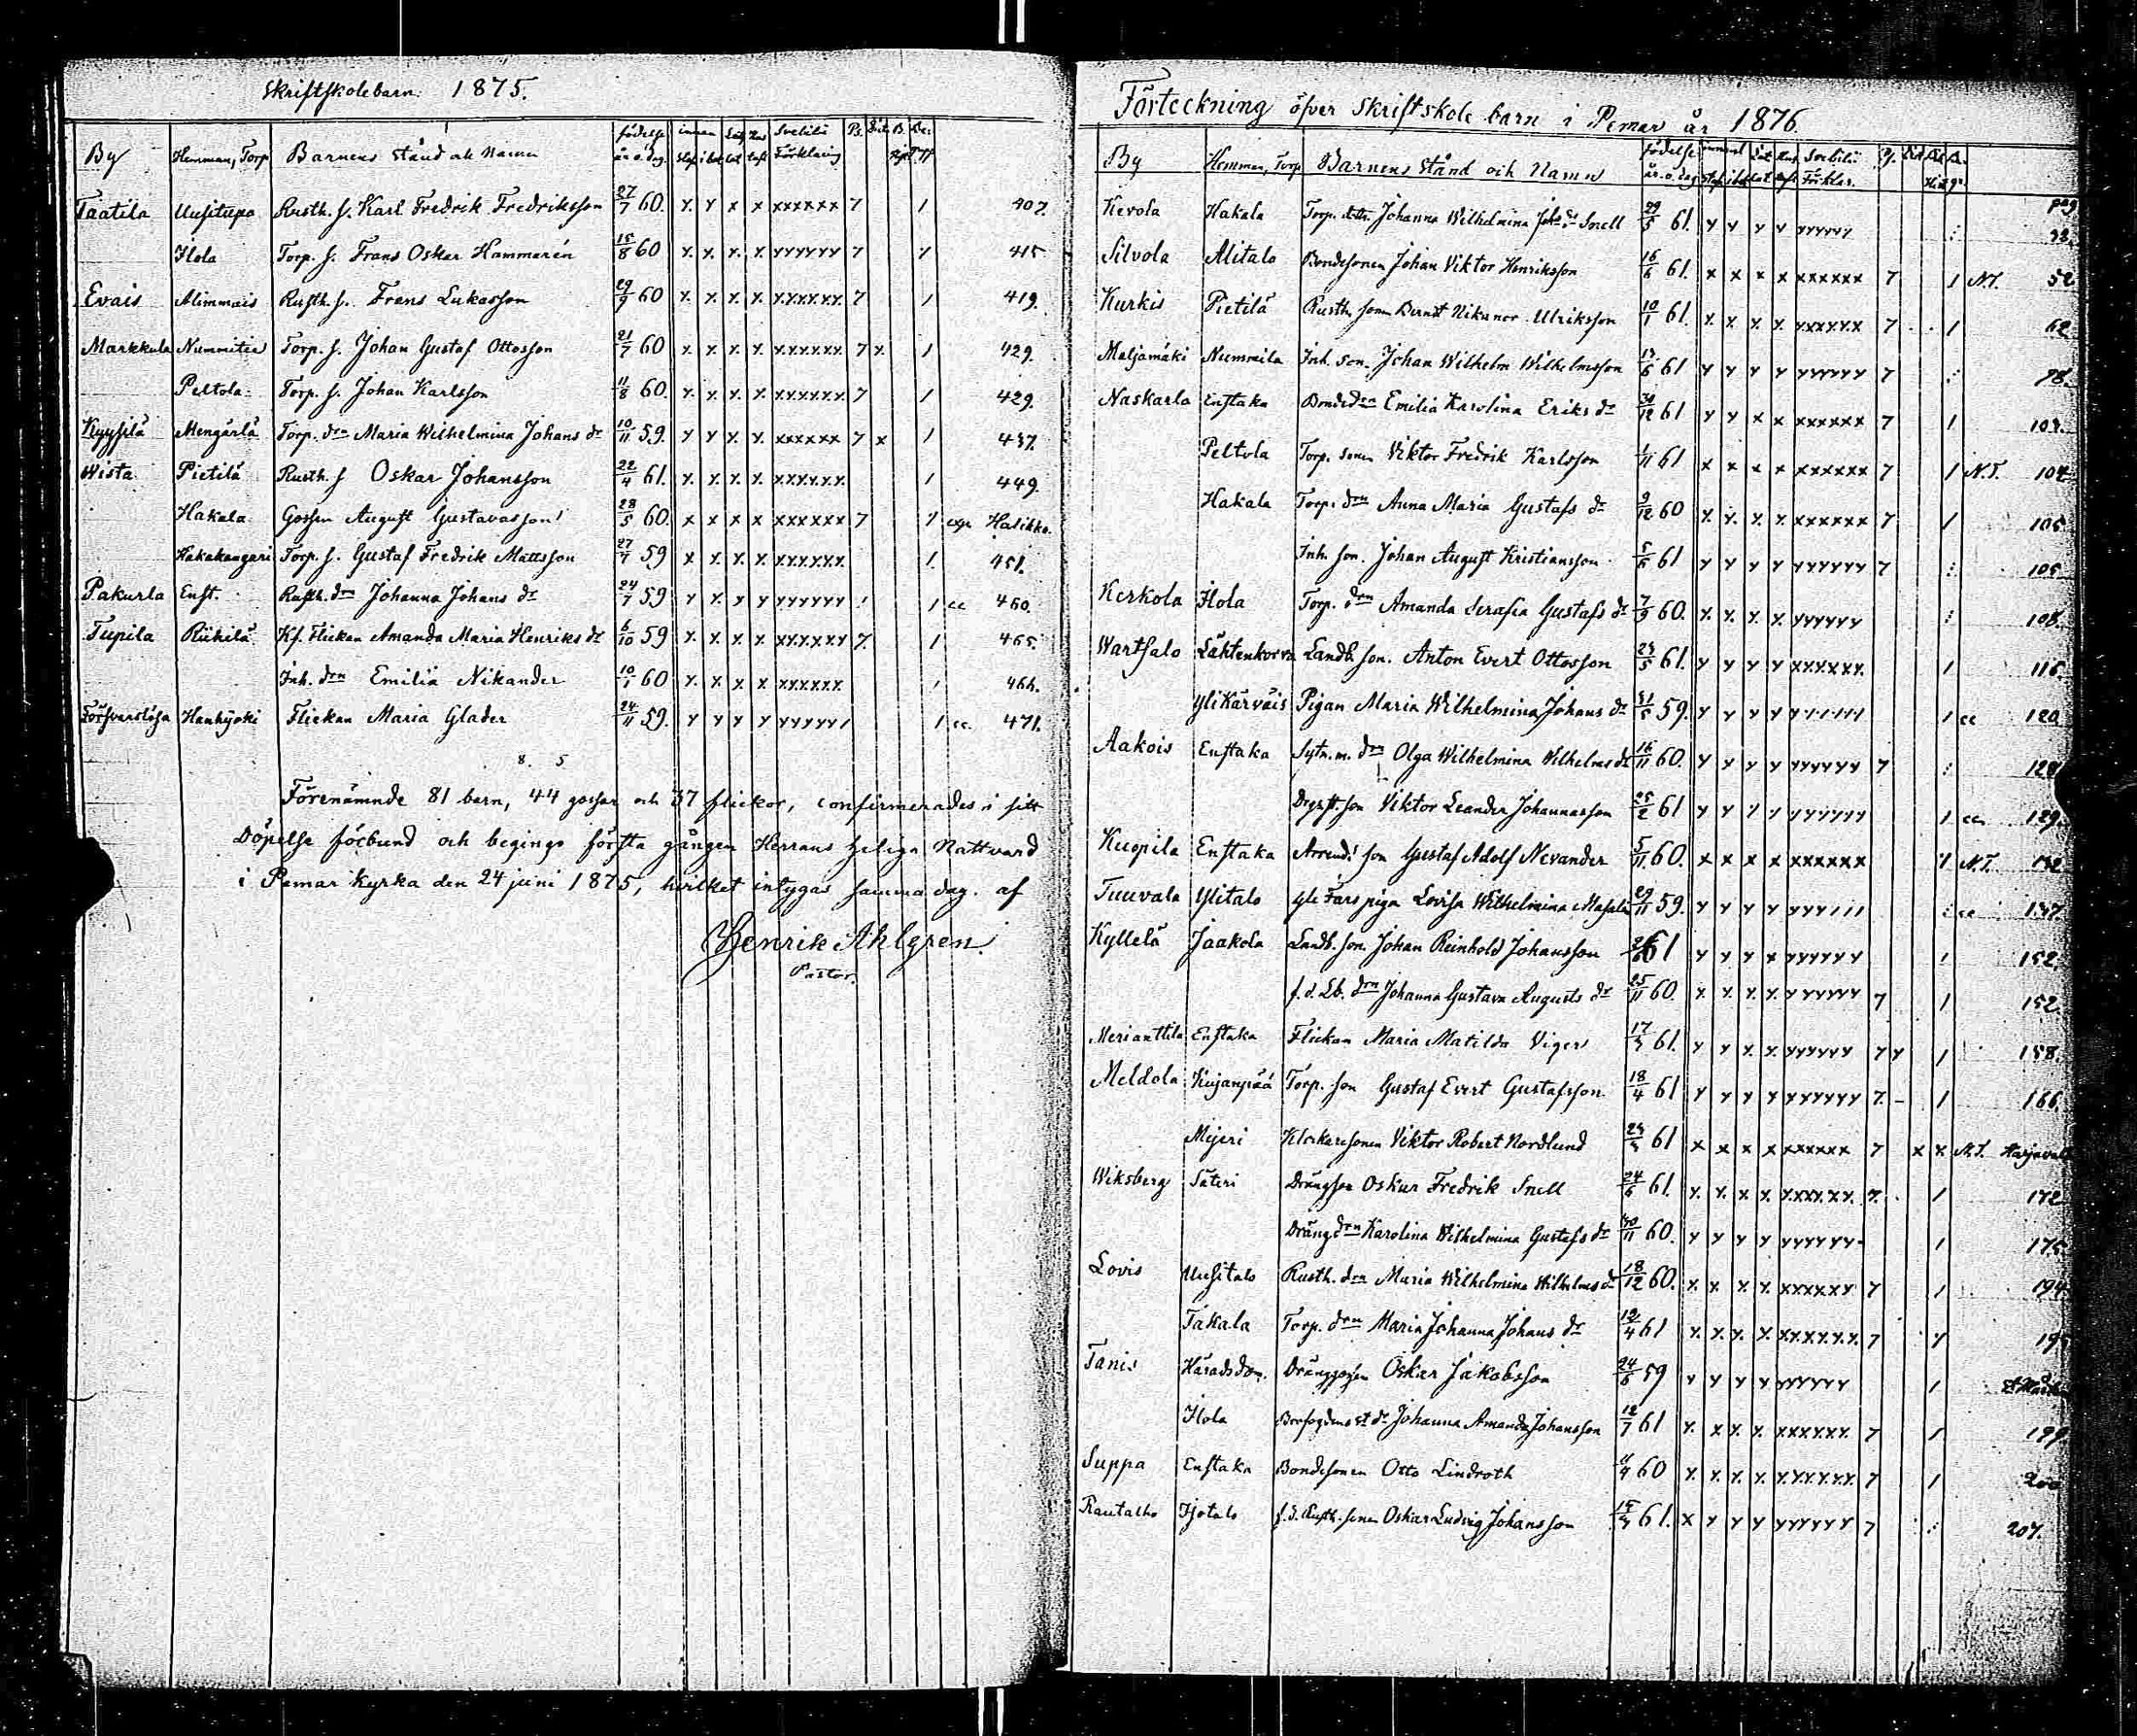 Skriftskolebarn 1875.
By Hemman, Torp Barnens stånd och Namn födelse år o. dag. innan Svebilii Förklaring
Taatila Uusitupa Rusth. s. Karl Fredrik Fredriksson 27/7 60. x x x x xxxxxx 7 1 407.
Ilola Torp. s. Frans Oskar Hammarén 15/8 60 x x x x xxxxxx 7 1 415
Evais Alimmais Rusth. s. Frans Lukasson 29/9 60 x x x x xxxxxx 7 1 419.
Markkula Nummitie Torp. s. Johan Gustaf Ottosson 21/7 60 x x x x xxxxxx 7 x 1 429.
Peltola Torp. s. Johan Karlsson 11/8 60. x x x x xxxxxx 7 1 429.
Kyysilä Mengärlä Torp. drn Maria Wilhelmina Johans dr 10/11 59. x x x x xxxxxx 7 x 1 437.
Wista Pietilä Rusth. s Oskar Johansson 22/4 61. x x x x xxxxxx 1 449.
Hakala Gossen August Gustavasson 28/5 60. x x x x xxxxxx 7 1 Halikko.
Hakakangari Torp. s. Gustaf Fredrik Mattsson 59 x x x x xxxxxx 1. 451.
Pakurla Enst. Rusth. drn Johanna Johans dr 24/7 59 x x x x xxxxxx 1 cc 460.
Tupila Riihilä Kf. Flickan Amanda Maria Henriks dr 6/10 59 x x x x xxxxxx 7. 1 465.
Inh. drn Emilia Nikander 10/1 60 x x x x xxxxxx 1 466.
Försvarslösa Hanhijoki Flickan Maria Glader 24/11 59. x x x x 1 cc. 471.
8. 5
Förenämnde 81 barn, 44 gossar och 37 flickor, confirmerades i sitt
Döpelse förbund och begingo första gången Herrans heliga Nattvard
i Pemar Kyrka den 24 juni 1875, hvilket intygas samma dag. af
Henrik Ahlgren.
Pastor.
Förteckning öfver Skriftskole barn i Pemar år 1876.
By Hemman, Torp Barnens Stånd och Namn födelse år. o. dag Svebilii Förklar.
pag.
Kevola Hakala Torp. dttr. Johanna Wilhelmina Snell 29/5 61. x x x x xxxxxx
Silvola Alitalo Bondesonen Johan Viktor Henriksson 16/6 61. x x x x xxxxxx 7 1 N.T. 52
Kurkis Pietilä Rusth. sonen Berndt Nikanor Ulriksson 10/1 61. x x x x xxxxxx 7 1 62.
Maljamäki Nummila Inh. son. Johan Wilhelm Wilhelmsson 61 x x x x xxxxxx 7 78.
Naskarla Enstaka Bondedrn Emilia Karolina Eriks dr 30/12 61 x x x x xxxxxx 7 1
Peltola Torp. sonen Viktor Fredrik Karlsson 1/11 61 x x x x xxxxxx 7 1 N.T. 104
Hakala Torp. drn Anna Maria Gustafs dr 9/12 60 x x x x xxxxxx 7 1 105
Inh. son. Johan August Kristiansson 61 x x x x xxxxxx 7 105
Kerkola Ilola Torp. drn Amanda Serafia Gustafs dr 60. x x x x xxxxxx 108.
Wartsalo Lähtenkorva Landb. son. Anton Evert Ottosson 61. x x x x xxxxxx 1 116.
Ylikärväis Pigan Maria Wilhelmina Johans dr 59. x x x x 1 cc 120
Aakois Enstaka Sytn. m. drn Olga Wilhelmina Wilhelms dr 16/11 60. x x x x xxxxxx 7 128
son Viktor Leander Johannasson 25/2 61 x x x x xxxxxx 1 cc 129.
Kuopila Enstaka Arrend. son Gustaf Adolf Nevander 5/11 60. x x x x xxxxxx 1 N.T. 132
Tuuvala Ylitalo Wilhelmina 29/11 59. x x x x cc 137
Kyllelä Jaakola Landb. son. Johan Reinhold Johansson 61 x x x x xxxxxx 1 152.
f. d. Lb. drn Johanna Gustava Augusts dr 25/11 60. x x x x xxxxxx 7 1 152.
Merianttila Enstaka Flickan Maria Matilda Viger 61. x x x x xxxxxx 7 x 1 158.
Meldola Kujanpää Torp. son Gustaf Evert Gustafsson 18/4 61 x x x x xxxxxx 7. - 1 166.
Mijeri Klockaresonen Viktor Robert Nordlund 61 x x x x xxxxxx 7 x x N.T. Harjavalt
Wiksberg Säteri Drängson Oskar Fredrik Snell 24/6 61. x x x x xxxxxx 7. 1 172
Dräng drn Karolina Wilhelmina Gustafs dr 30/11 60. x x x x xxxxxx 1 175
Lovis Uusitalo Rusth. drn Maria Wilhelmina Wilhelms dr 18/12 60. x x x x xxxxxx 7 1 194.
Takala Torp. drn Maria Johanna Johans dr 61 x x x x xxxxxx 7
Tanis Häradsdom. Dränggossen Oskar Jakobsson 59 x x x x xxxxxx 1
Ilola Johanna Amanda Johansson 12/7 61 x x x x xxxxxx 7 1 199
Suppa Enstaka Bondesonen Otto Lindroth 60 x x x x xxxxxx 7 1 200
Rautalho Isotalo f. d. Rusth. sonen Oskar Ludvig Johansson 61. x x x x xxxxxx 7 207.